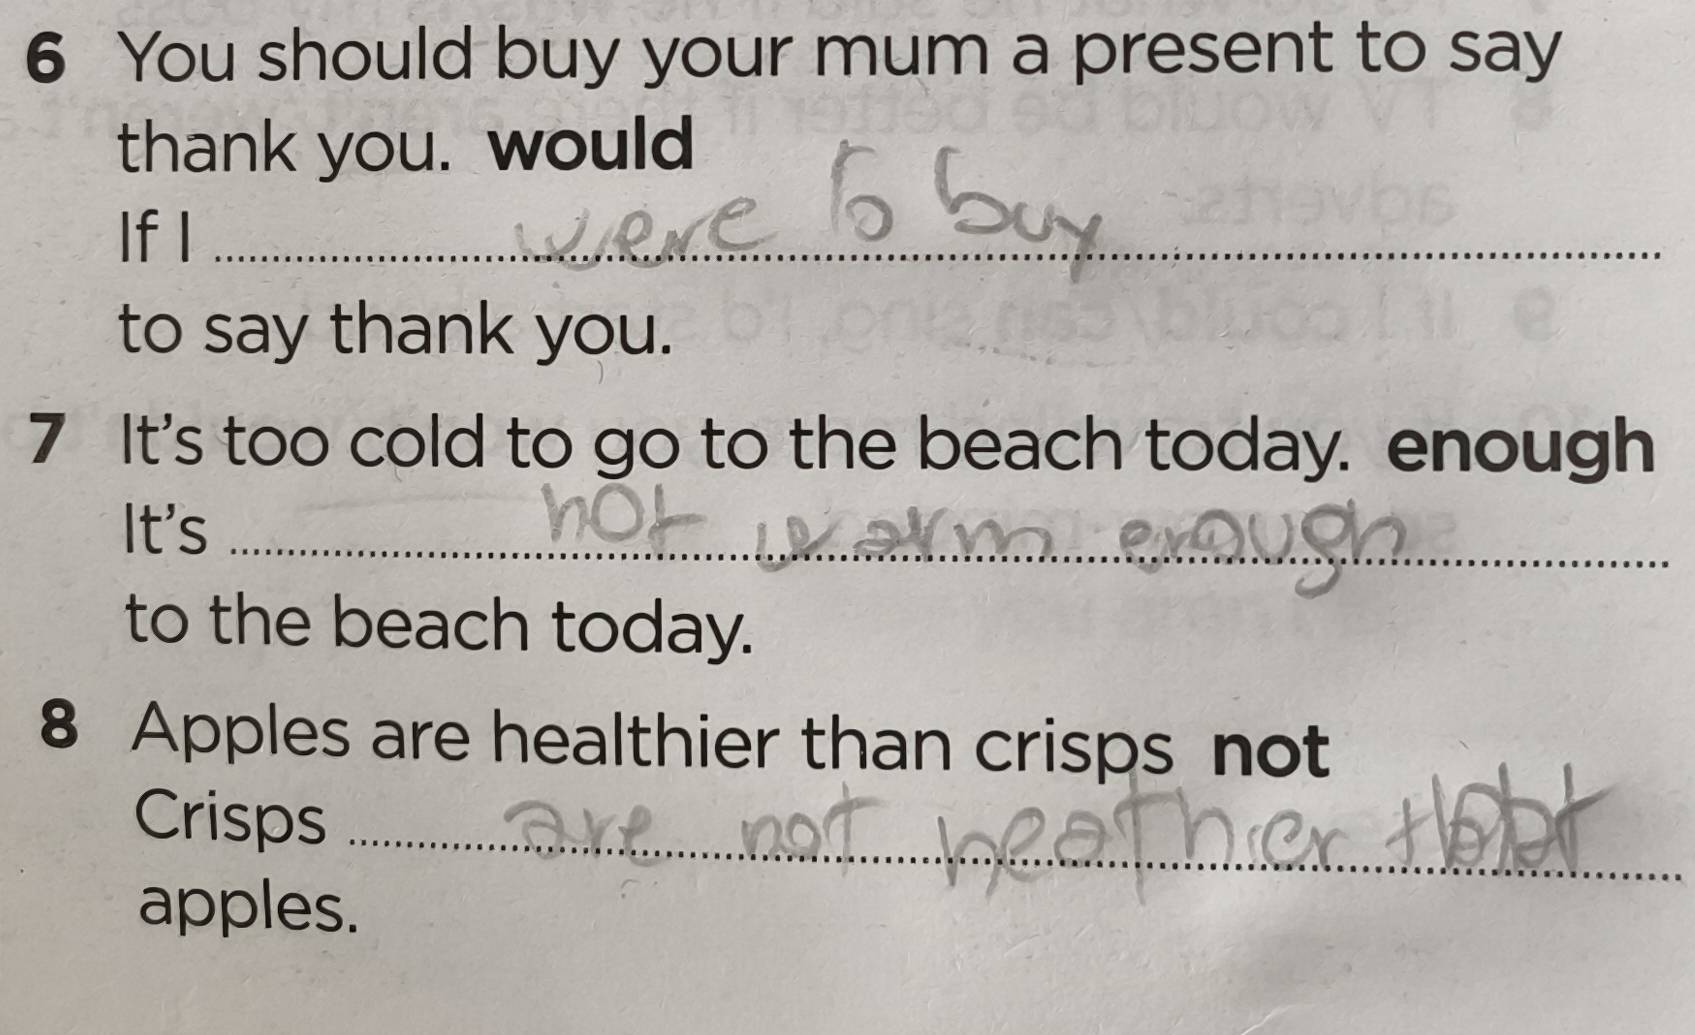 6 You should buy your mum a present to say
thank you. would
If I were to buy
to say thank you.
7 It's too cold to go to the beach today. enough
It's not warm enough
to the beach today.
8 Apples are healthier than crisps not
Crisps are not heathier
apples.